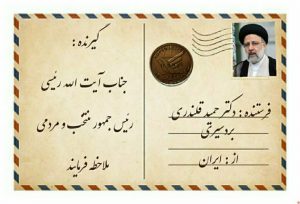 گیرنده :
جناب آیت الله رئیسی
رئیس جمهور منتخب و مردمی
ملاحظه فرمایند
فرستنده : دکتر حمید قلندری
بردسیری
از : ایران